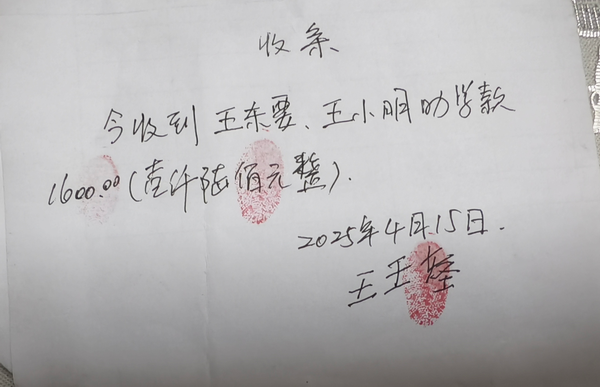 收条
今收到王东要、王小明助学款
1600.00(壹仟陆佰元整).
2025年4月15日.
王王